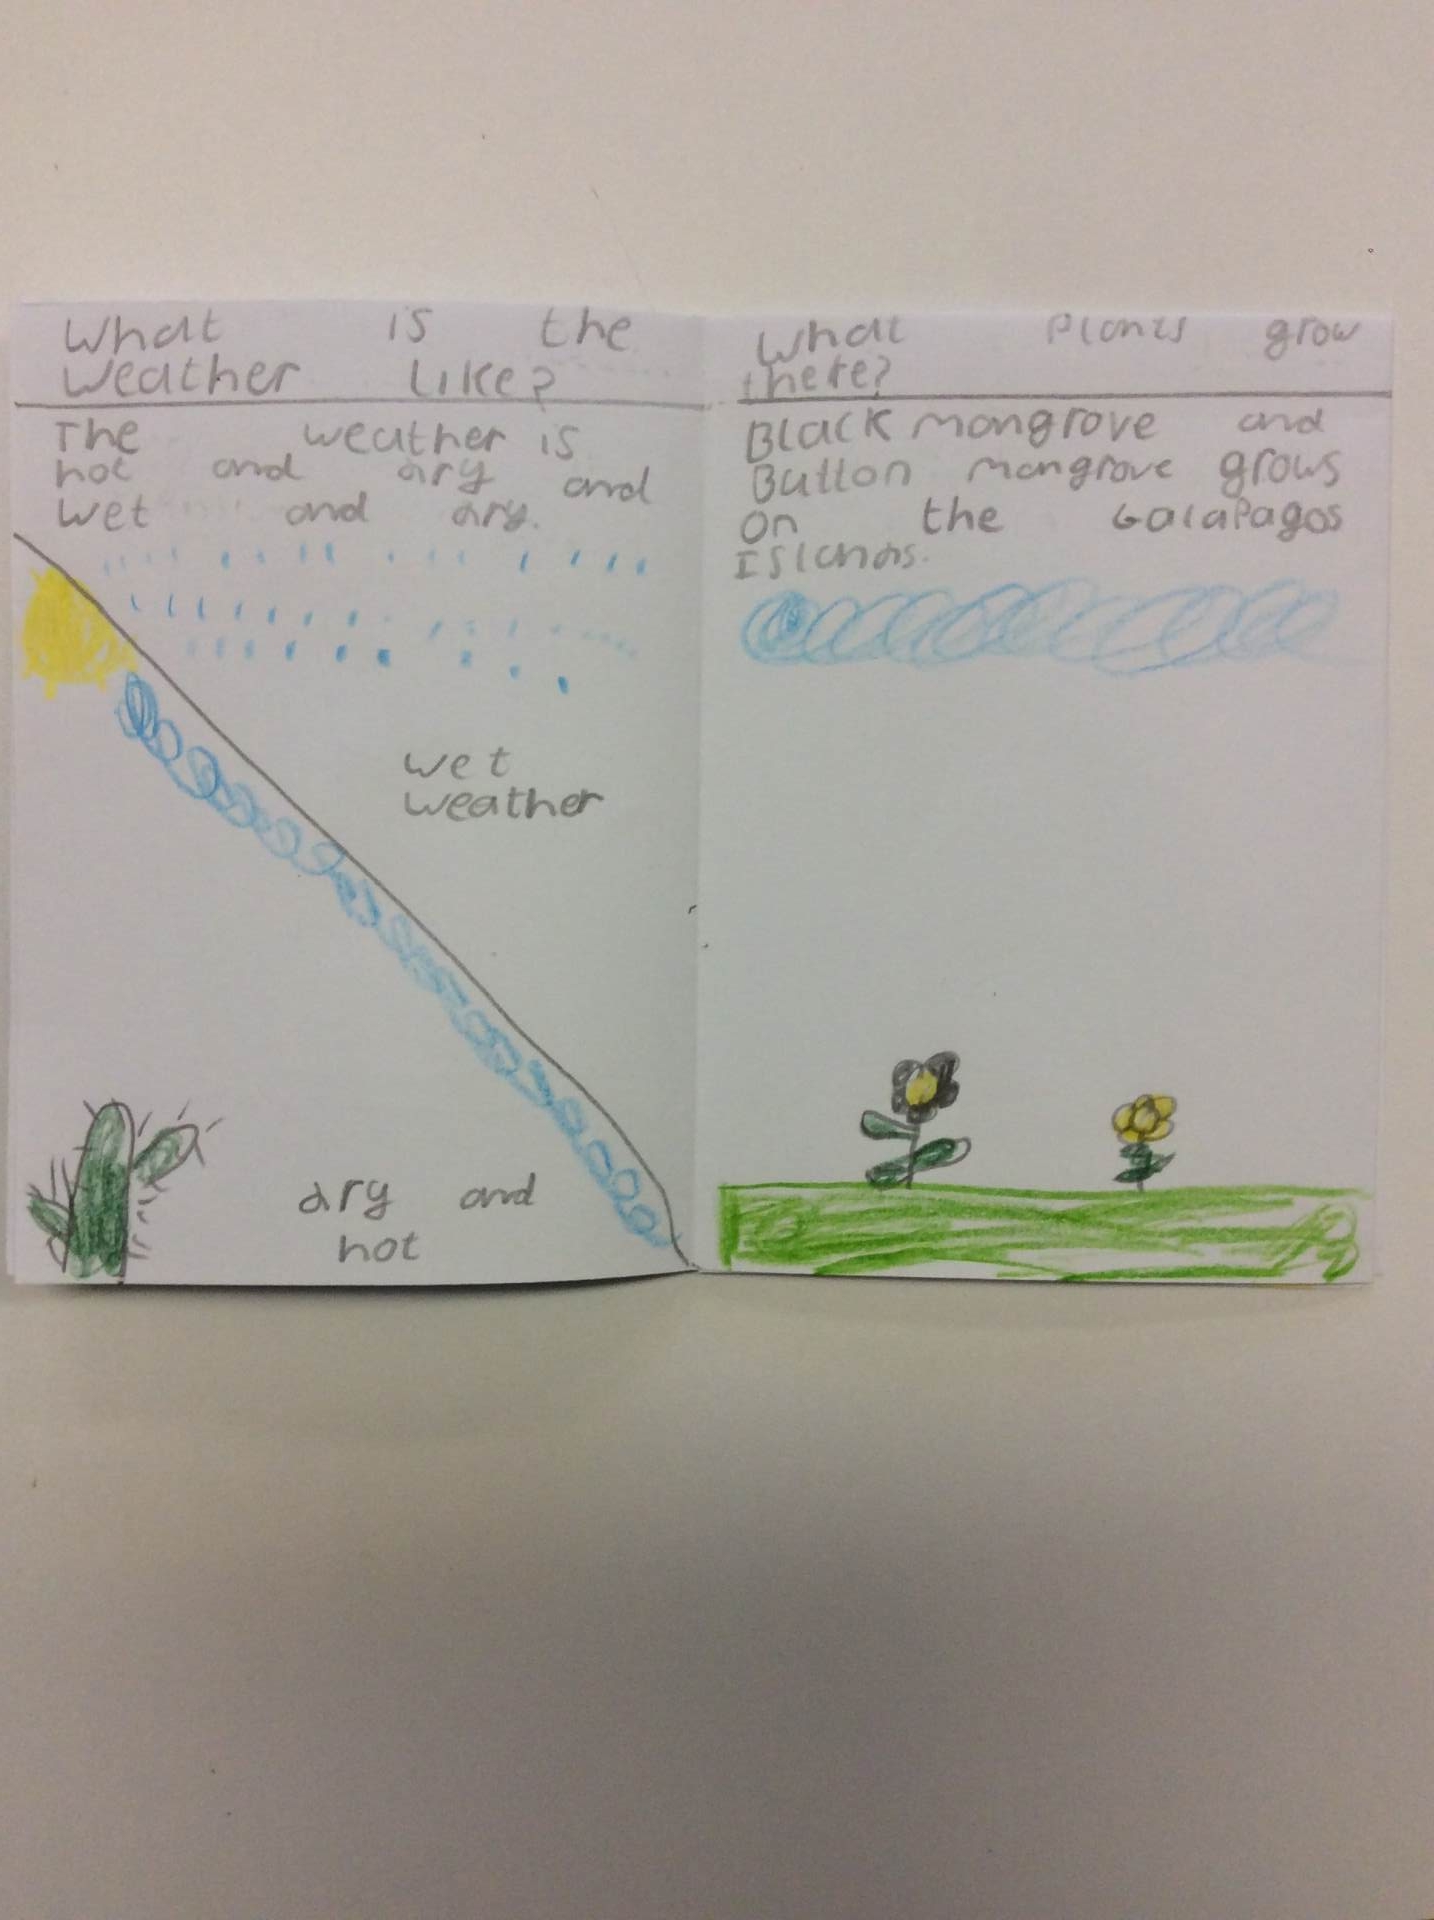 What is the
weather like?
The weather is
hot and dry and
wet and dry.
wet
weather
dry and
hot
What Plants grow
there?
Black mongrove and
Button mongrove grows
on the Galapagos
Islands.